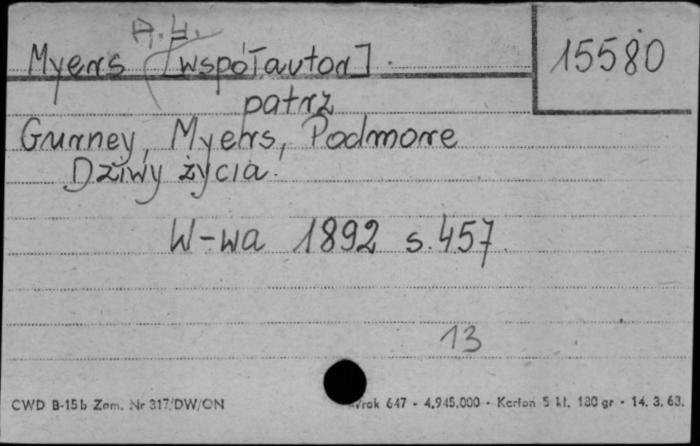 A.H.
Myers [współautor] 15580
patrz
Gurney, Myers, Podmore
Dziwy życia.
W-wa 1892 s.457.
13
CWD B-15b Zam. Nr 317/DW/ON 647 - 4.945.000 - Karton 5 kl. 180 gr - 14. 3. 63.